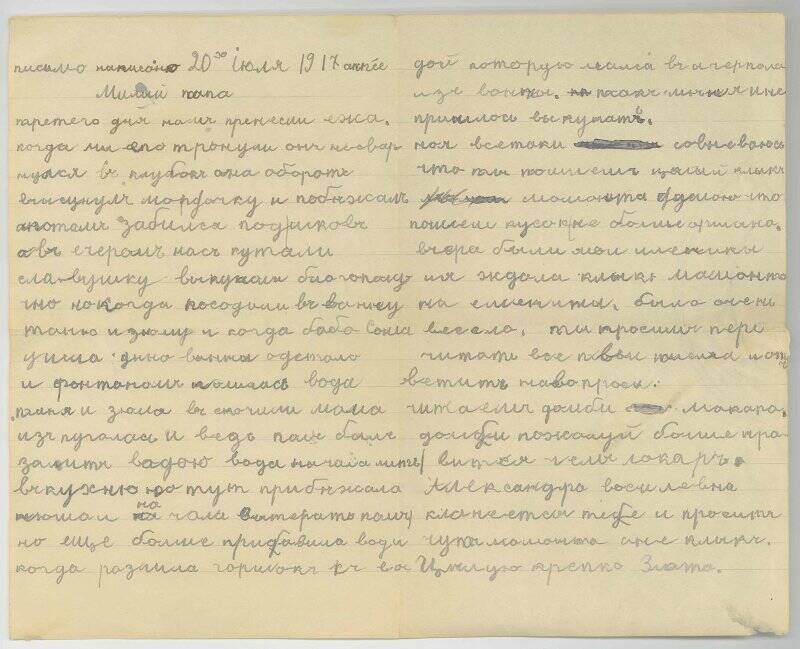 письмо написано 20го Іюля 1917
Милий папа
третего дня намъ принесли ежа.
когда ми его тронули онъ несвар
нулся въ клубокъ она оборотъ
висунулъ мордочку и побѣжалъ
апотомъ забился подшковъ
авъ ечеромъ насъ купали
славушку выкупали благополу
чно но когда посодили въ ванну
таню и зюлю и когда баба Соша
ушла дно ванны одстало
и фонтаномъ полилась вода
таня и зюла въ скочили мама
изъ пугалась и ведь полъ былъ
залитъ вадою вода начала лить
въкухню но тутъ прибѣжала
нюша и на чала витерать полъ
но еще болше прибавила води
когда разлила горшокъ съ во
дой которую малса вичерпола
изъ ванни. такъ мення ине
пришлось выкупать.
ноя всетаки сомневаюсь
что ти пошлешъ целый клыкъ
мамонта ядумаю что
пошлеш кусок не болше аршина.
вчера были мои именины
ия ждала клыкъ мамонта
на именины. било очень
весело. ти просилъ пере
читать все твои писма и от
ветить навопроси.
читаемъ домби макара.
домби пожалуй болше нра
вится чемъ макаръ.
Александра восилевна
кланеется тебе и проситъ
чуть мамонта ане клыкъ.
Цѣлую крепко Злата.